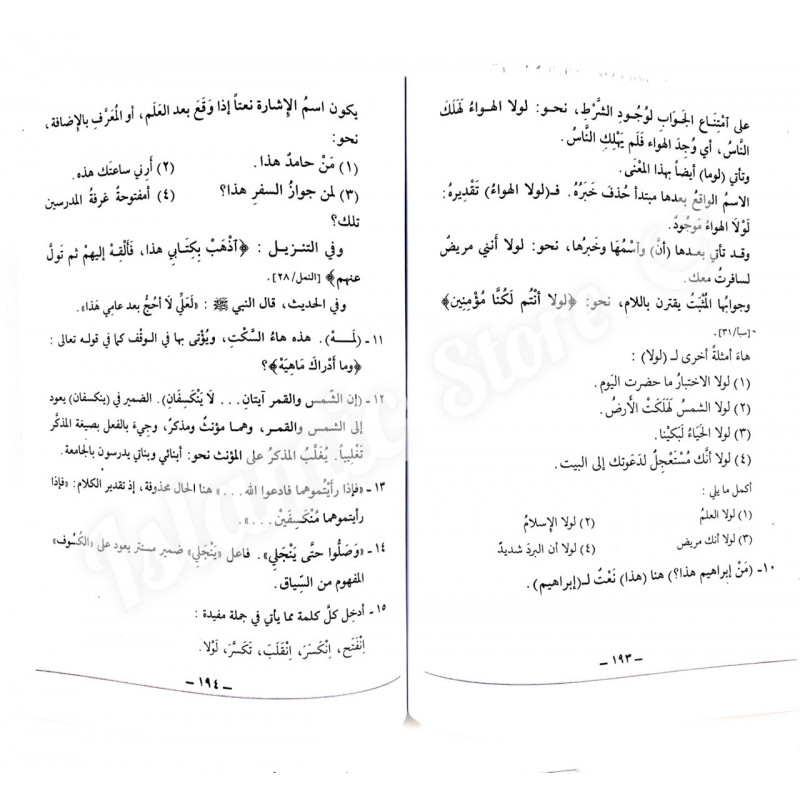 على آمْتِنَاعِ الجَوَابِ لوُجُودِ الشَّرْطِ، نحو: لولا الهواءُ لَهَلَكَ
النَّاسُ، أي وُجِدَ الهواء فَلَم يَهْلِكِ النَّاسُ.
وتأتي (لوما) أيضاً بهذا المعْنَى.
الاسمُ الواقعُ بعدها مبتدأ حُذفَ خَبَرُهُ. فـ(لولا الهواءُ) تقديرهُ:
لَوْلَا الهواءُ مَوْجُودٌ.
وقد تأتي بعدها (أنَّ) وآسْمُهَا وخَبَرُها، نحو: لولا أنني مريضٌ
لسافرتُ معك.
وجوابُها المُثْبَتُ يقترن باللام، نحو: ﴿لولا أنْتُم لَكُنَّا مُؤْمِنِين﴾
[سبأ/٣١].
هاءَ أمثلةً أخرى لـ (لولا):
(١) لولا الاختبارُ ما حضرت اليَوم.
(٢) لولا الشمسُ لَهَلَكَتْ الأرضُ.
(٣) لولا الحَيَاءُ لَبَكَيْنا.
(٤) لولا أنَّك مُسْتَعْجِلٌ لدَعَوتك إلى البيت.
أكمل ما يلي:
(١) لولا العلمُ (٢) لولا الإسلامُ
(٣) لولا أنك مريض (٤) لولا أن البردَ شديدٌ
١٠- (مَنْ إبراهيم هذا؟) هنا (هذا) نَعْتٌ لـ(إبراهيم).
– ١٩٣ –
يكون اسمُ الإشارة نعتاً إذا وَقَعَ بعد العَلَم، أو المُعَرَّفِ بالإضافة،
نحو:
(١) مَنْ حامدٌ هذا. (٢) أَرِني ساعتَك هذه.
(٣) لمن جوازُ السفرِ هذا؟ (٤) أمفتوحةٌ غرفةُ المدرسين
تلك؟
وفي التنزيل: ﴿آذْهَبْ بِكِتَابي هذا، فَأَلْقِهْ إليهِمْ ثم تَولَّ
عنهم﴾ [النمل/٢٨].
وفي الحديث، قال النبي ﷺ: «لَعَلِّي لَا أحُجُّ بعد عامِي هَذا».
١١- (لِمَهْ). هذه هاءُ السَّكْتِ، ويُؤْتى بها في الوقْف كما في قوله تعالى:
﴿وما أدْرَاكَ مَاهِيَهْ﴾؟
١٢- (إن الشَّمس والقمر آيتانِ... لا يَنْكَسِفَانِ). الضمير في (ينكسفان) يعود
إلى الشمس والقمر، وهما مؤنثٌ ومذكرٌ، وجِيءَ بالفعل بصيغة المذكَّر
تَغْلِيباً. يُغَلَّبُ المذكر على المؤنث نحو: أبنائي وبناتي يدرسون بالجامعة.
١٣- «فإذا رأيْتُموهما فادعوا الله...» هنا الحال محذوفة، إذ تقدير الكلام: «فإذا
رأيتموهما مُنْكَسِفَيْنِ...».
١٤- «وَصَلُّوا حتَّى يَنْجَلِي». فاعل «يَنْجَلي» ضمير مستتر يعود على «الكُسُوف»
المفهوم من السِّياق.
١٥- أدخِل كلَّ كلمة مما يأتي في جملة مفيدة:
اِنْفَتَح، اِنْكَسَرَ، اِنْقَلَبَ، تَكَسَّرَ، لَوْلا.
– ١٩٤ –
Islamic Store